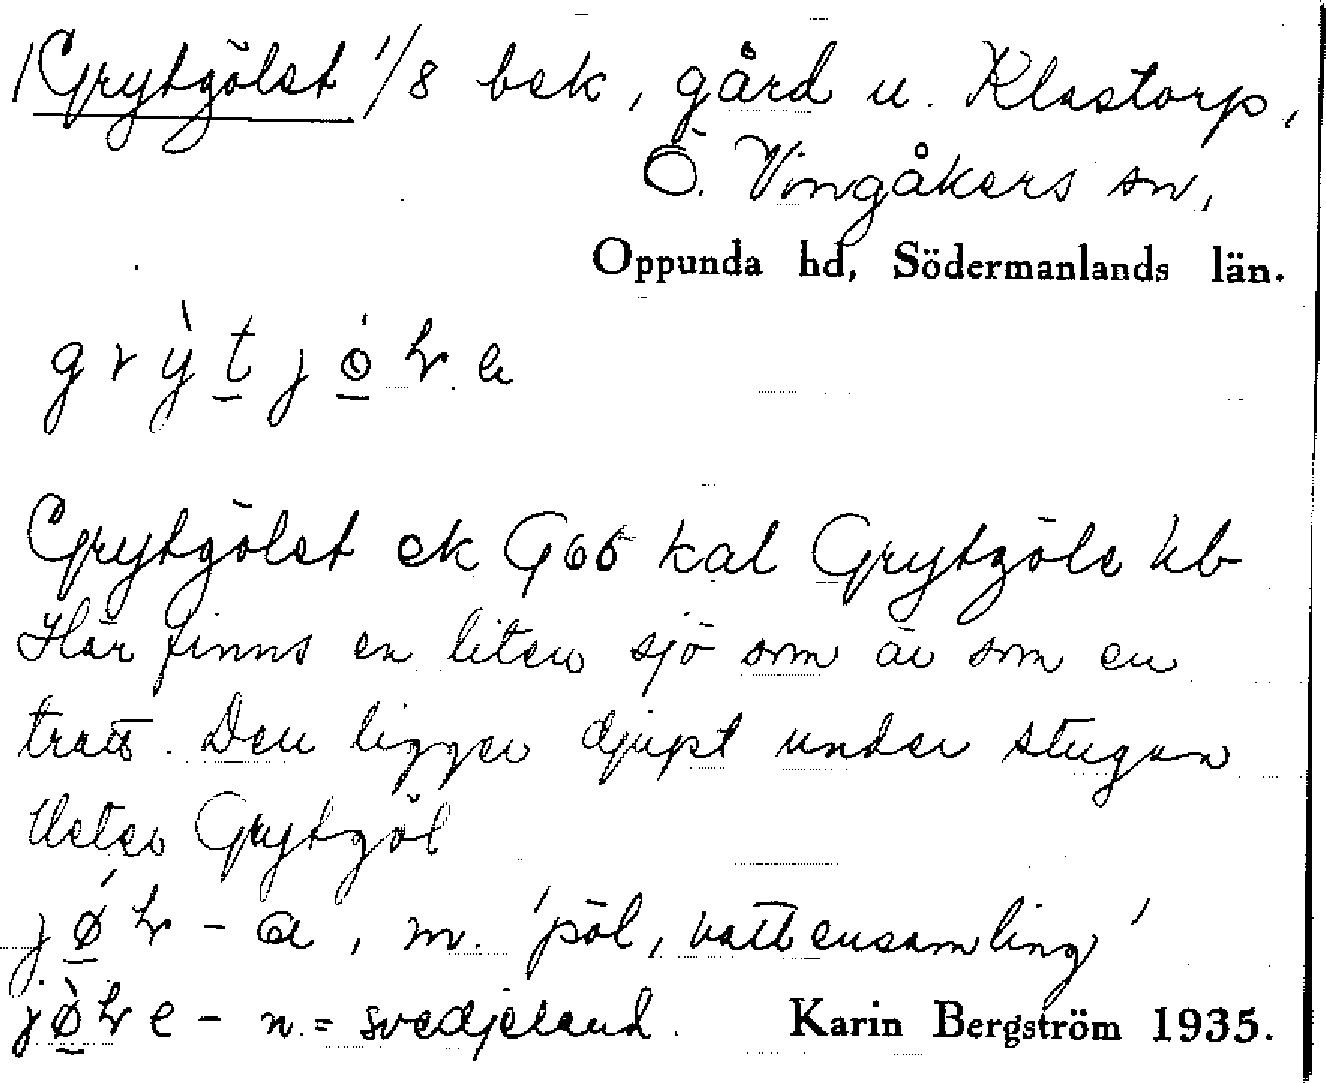 Grytgölet 1/8 bsk, gård u. Klastorp,
Ö. Vingåkers sn,
Oppunda hd, Södermanlands län.
g r ỳ̖ t̲ j
Grytgölet ek G66 kal Grytgöle hb
Här finns en liten sjö som är som en
tratt. Den ligger djupt under stugan
Heter Grytgöl
- a, m. 'pöl, vattensamling'
- n. = svedjeland. Karin Bergström 1935.